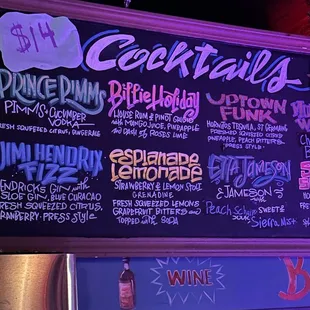 $14
Cocktails
PRINCE PIMMS
PIMMS + CUCUMBER
VODKA
FRESH SQUEEZED CITRUS,
Billie Holiday
HOUSE RUM & PINOT GRIGIO
WITH MANGO JUICE, PINEAPPLE
AND LIME
UPTOWN
FUNK
TEQUILA, ST GERMAINE
FRESH SQUEEZED CITRUS
PINEAPPLE, PEACH BITTERS
PRESS STYLE
JIMI HENDRIX
FIZZ
HENDRICKS GIN WITH
SLOE GIN, BLUE CURACAO
FRESH SQUEEZED CITRUS,
CRANBERRY-PRESS STYLE
esplanade
Lemonade
STRAWBERRY & LEMON STOLI,
GRENADINE
FRESH SQUEEZED LEMONS
GRAPEFRUIT BITTERS AND
TOPPED WITH SODA
ETTA JAMESON
& JAMESON
Peach
SWEET &
Sierra Mist
WINE